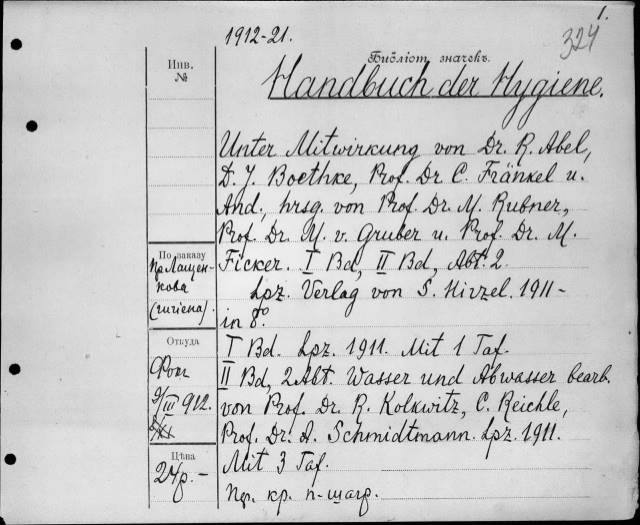 1.
1912-21.
324
Библіот. значекъ.
Инв.
№
Handbuch der Hygiene.
Unter Mitwirkung von Dr. R. Abel,
D. J. Boethke, Prof. Dr C. Fränkel u.
And., hrsg. von Prof. Dr. M. Rubner,
Prof. Dr. M. v. Gruber u. Prof. Dr. M.
Ficker. I Bd, II Bd, Abt. 2.
По заказу
Пр. Лащен-
кова
(гигіена).
Lpz. Verlag von S. Hirzel. 1911 -
in 8°.
Откуда
Фокъ
9/III 912.
I Bd. Lpz. 1911. Mit 1 Taf.
II Bd, 2 Abt. Wasser und Abwasser bearb.
von Prof. Dr. R. Kolkwitz, C. Reichle,
Prof. Dr. A. Schmidtmann. Lpz. 1911.
Mit 3 Taf.
Цѣна
24 р. -